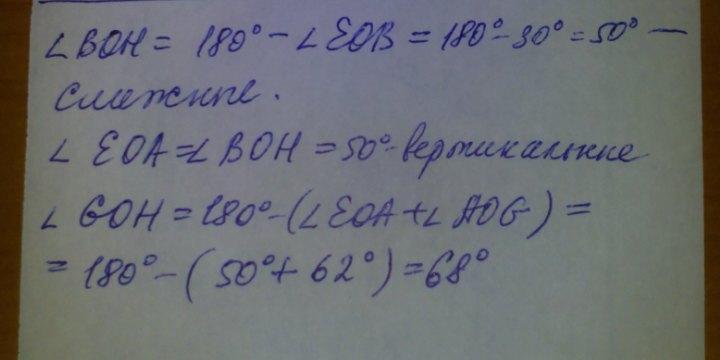 ∠BOH = 180° - ∠EOB = 180° - 30° = 50° —
смежные.
∠ EOA = ∠ BOH = 50° - вертикальные
∠ GOH = 180° - (∠EOA + ∠ AOG) =
= 180° - (50° + 62°) = 68°